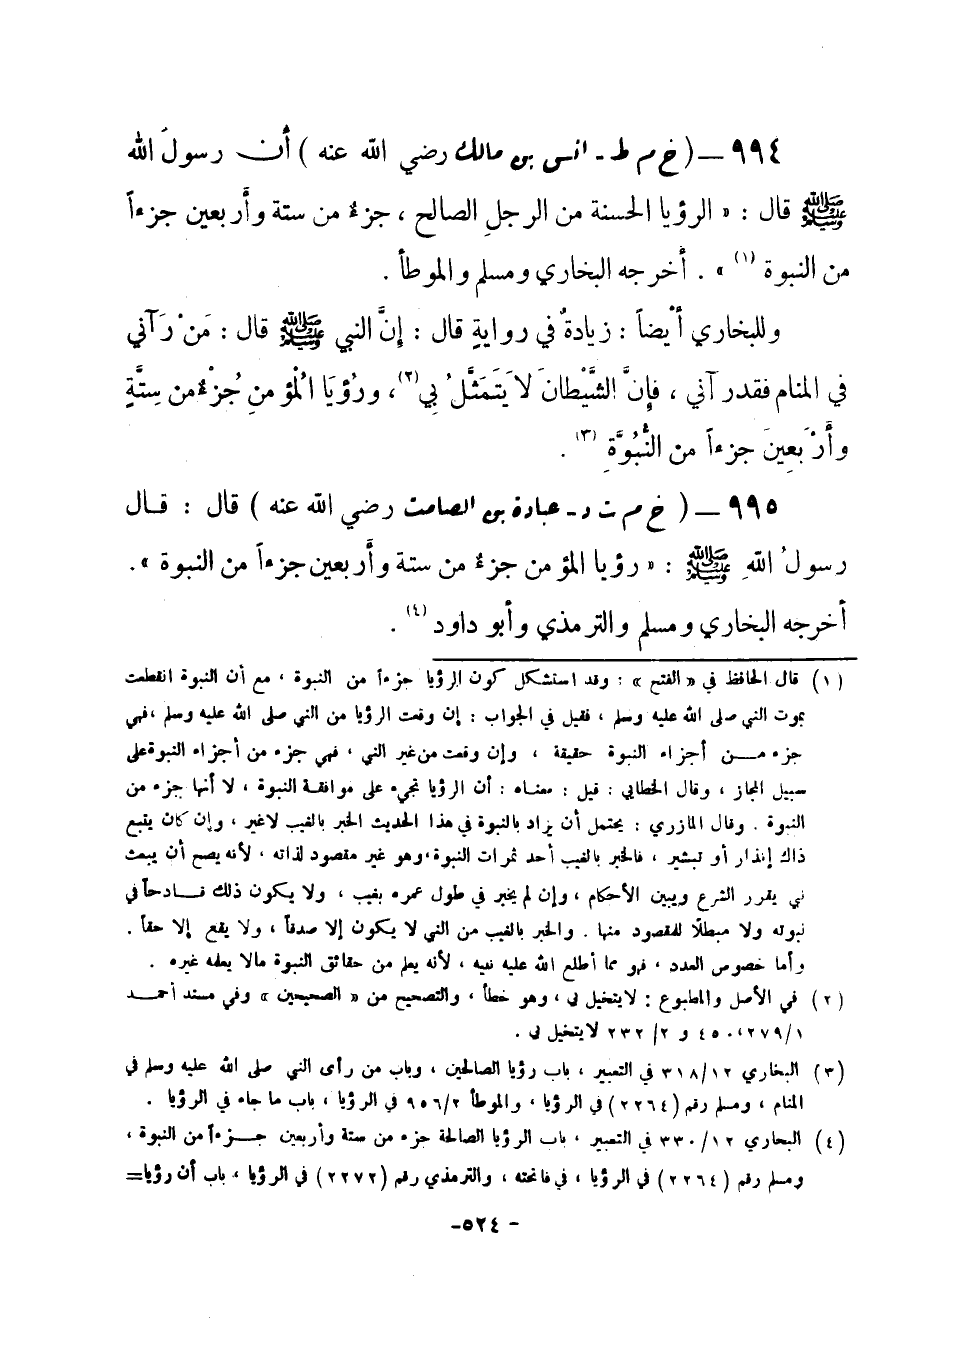 ٩٩٤ — ( خ م ط - انس بن مالك رضي الله عنه ) أن رسولَ الله
ﷺ قال : « الرؤيا الحسنة من الرجلِ الصالح ، جزءٌ من ستة وأربعين جزءاً
من النبوة (١) » . أخرجه البخاري ومسلم والموطأ .
وللبخاري أيْضاً : زيادةٌ في روايةٍ قال : إنَّ النبي ﷺ قال : مَنْ رَآني
في المنام فقد رآني ، فإنَّ الشَّيْطانَ لا يَتَمَثَّلُ بي (٢) ، ورُؤيَا المُؤمنِ جُزْءٌ من سِتَّةٍ
وأَرْبَعِينَ جزءاً من النُّبُوَّةِ (٣) .
٩٩٥ — ( خ م ت د - عبادة بن الصامت رضي الله عنه ) قال : قال
رسولُ اللهِ ﷺ : « رؤيا المؤمن جزءٌ من ستة وأربعين جزءاً من النبوة » .
أخرجه البخاري ومسلم والترمذي وأبو داود (٤) .
(١) قال الحافظ في « الفتح » : وقد استشكل كون الرؤيا جزءاً من النبوة ، مع أن النبوة انقطعت
بموت النبي صلى الله عليه وسلم ، فقيل في الجواب : إن وقعت الرؤيا من النبي صلى الله عليه وسلم ، فهي
جزء من أجزاء النبوة حقيقة ، وإن وقعت من غير النبي ، فهي جزء من أجزاء النبوة على
سبيل المجاز ، وقال الخطابي : قيل : معناه : أن الرؤيا تجيء على موافقة النبوة ، لا أنها جزء من
النبوة . وقال المازري : يحتمل أن يراد بالنبوة في هذا الحديث الخبر بالغيب لاغير ، وإن كان يتبع
ذاك إنذار أو تبشير ، فالخبر بالغيب أحد ثمرات النبوة ، وهو غير مقصود لذاته ، لأنه يصح أن يبعث
نبي يقرر الشرع ويبين الأحكام ، وإن لم يخبر في طول عمره بغيب ، ولا يكون ذلك قادحاً في
نبوته ولا مبطلًا للمقصود منها . والخبر بالغيب من النبي لا يكون إلا صدقاً ، ولا يقع إلا حقاً .
وأما خصوص العدد ، فهو مما أطلع الله عليه نبيه ، لأنه يعلم من حقائق النبوة مالا يعلمه غيره .
(٢) في الأصل والمطبوع : لا يتخيل بي ، وهو خطأ ، والتصحيح من « الصحيحين » وفي مسند أحمد
١/٢٧٩، ٤٥٠ و ٢/ ٢٣٢ لا يتخيل بي .
(٣) البخاري ١٢/٣١٨ في التعبير ، باب رؤيا الصالحين ، وباب من رأى النبي صلى الله عليه وسلم في
المنام ، ومسلم رقم (٢٢٦٤) في الرؤيا ، والموطأ ٢/٩٥٦ في الرؤيا ، باب ما جاء في الرؤيا .
(٤) البخاري ١٢/٣٣٠ في التعبير ، باب الرؤيا الصالحة جزء من ستة وأربعين جزءاً من النبوة ،
ومسلم رقم (٢٢٦٤) في الرؤيا ، في فاتحته ، والترمذي رقم (٢٢٧٢) في الرؤيا ، باب أن رؤيا=
- ٥٢٤ -